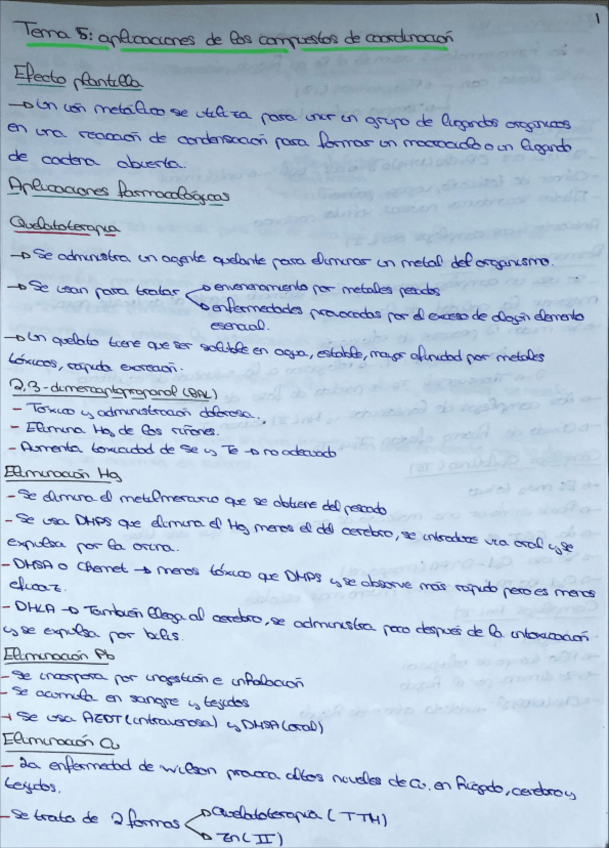 1
Tema 5: aplicaciones de los compuestos de coordinación
Efecto plantilla
→ Un ión metálico se utiliza para unir un grupo de ligandos orgánicos
en una reacción de condensación para formar un macrociclo o un ligando
de cadena abierta.
Aplicaciones farmacológicas
Quelatoterapia
→ Se administra un agente quelante para eliminar un metal del organismo.
→ Se usan para tratar → envenenamiento por metales pesados
→ enfermedades provocadas por el exceso de algún elemento
esencial.
→ Un quelato tiene que ser soluble en agua, estable, mayor afinidad por metales
tóxicos, rápida excreción.
2,3-dimercaptopropanol (BAL)
- Tóxico y administración dolorosa.
- Elimina Hg de los riñones.
- Aumenta toxicidad de Se y Te → no adecuado
Eliminación Hg
- Se elimina el metilmercurio que se obtiene del pescado
- Se usa DMPS que elimina el Hg menos el del cerebro, se introduce vía oral y se
expulsa por la orina.
- DMSA o Chemet → menos tóxico que DMPS y se absorve más rápido pero es menos
eficaz.
- DHLA → También llega al cerebro, se administra poco después de la intoxicación
y se expulsa por bilis.
Eliminación Pb
- Se incorpora por ingestión e inhalación
- Se acumula en sangre y tejidos
+ Se usa AEDT (intravenosa) y DMSA (oral)
Eliminación Cu
- La enfermedad de Wilson provoca altos niveles de Cu en hígado, cerebro y
tejidos.
- Se trata de 2 formas → Quelatoterapia (TTM)
→ Zn(II)